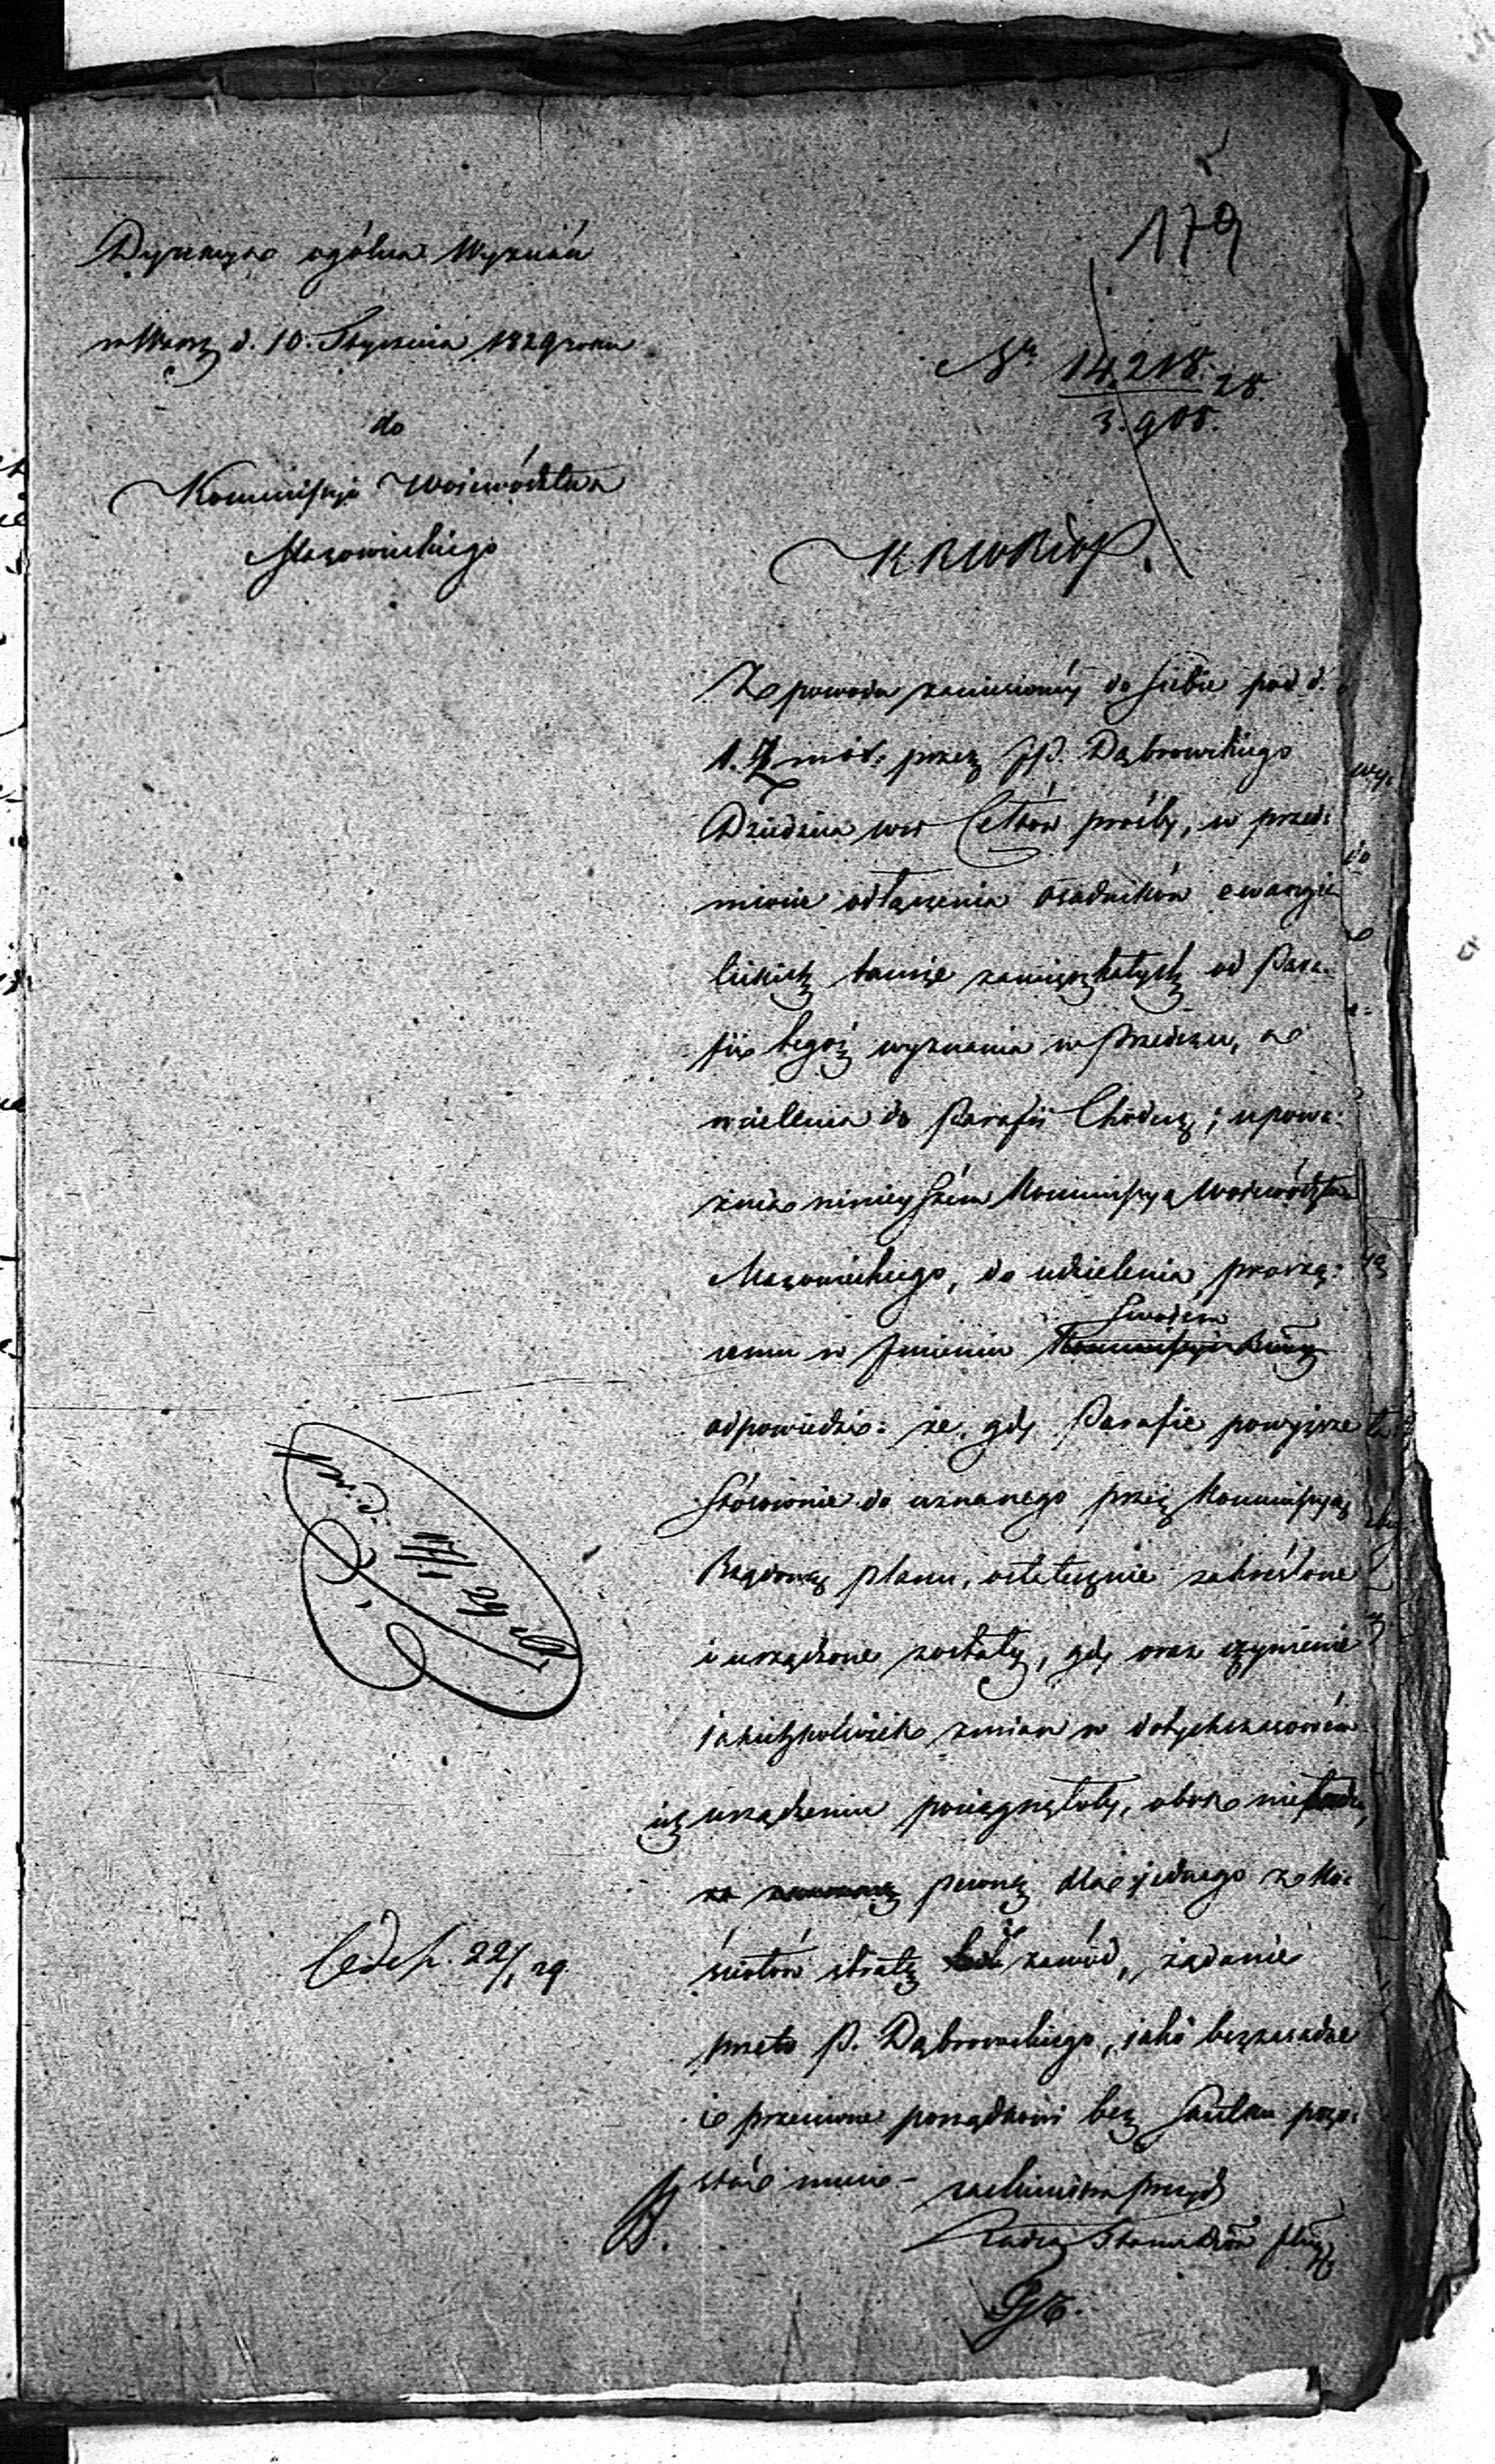 179
Dyrekcya ogólna Wyznań
w Warsz d. 10. Stycznia 1829 roku
Nr 14,218. 28.
3.908.
do
Kommissyi Województwa
Mazowieckiego
KRWRiOP.
Z powodu zaniesioney do siebie pod d.
1. mb. przez JP. Dąbrowskiego
Dziedzica wsi Cetków prośby, w przed:
miocie odłączenia osadników ewangie
lickich tamże zamięszkałych od Para:
fii tegoż wyznania w Przedczu, a
wcielenia do Parafii Chodecz; upowa:
żnia ninieyszém Kommissyą Województwa
Mazowieckiego, do udzielenia proszą:
Swoiém
cemu w Jmieniu Kommissyi Rząd
odpowiedzi: że, gdy Parafie powyższe
stósownie do uznanego przez Kommissyą
Rządową planu, ostatecznie zakreślone
i urządzone zostały, gdy oraz czynienie
jakichkolwiek zmian w dotychczasowém
ich urządzeniu pociągnęłoby, obok nie
pewnéy dla jednego z Ko:
ściołów straty zawód, żądanie
przeto P. Dąbrowskiego, jako bezzasadne
i przeciwne porządkowi bez skutku pozo:
stać musi –
Radca Stanu
Exp. 22/1 29